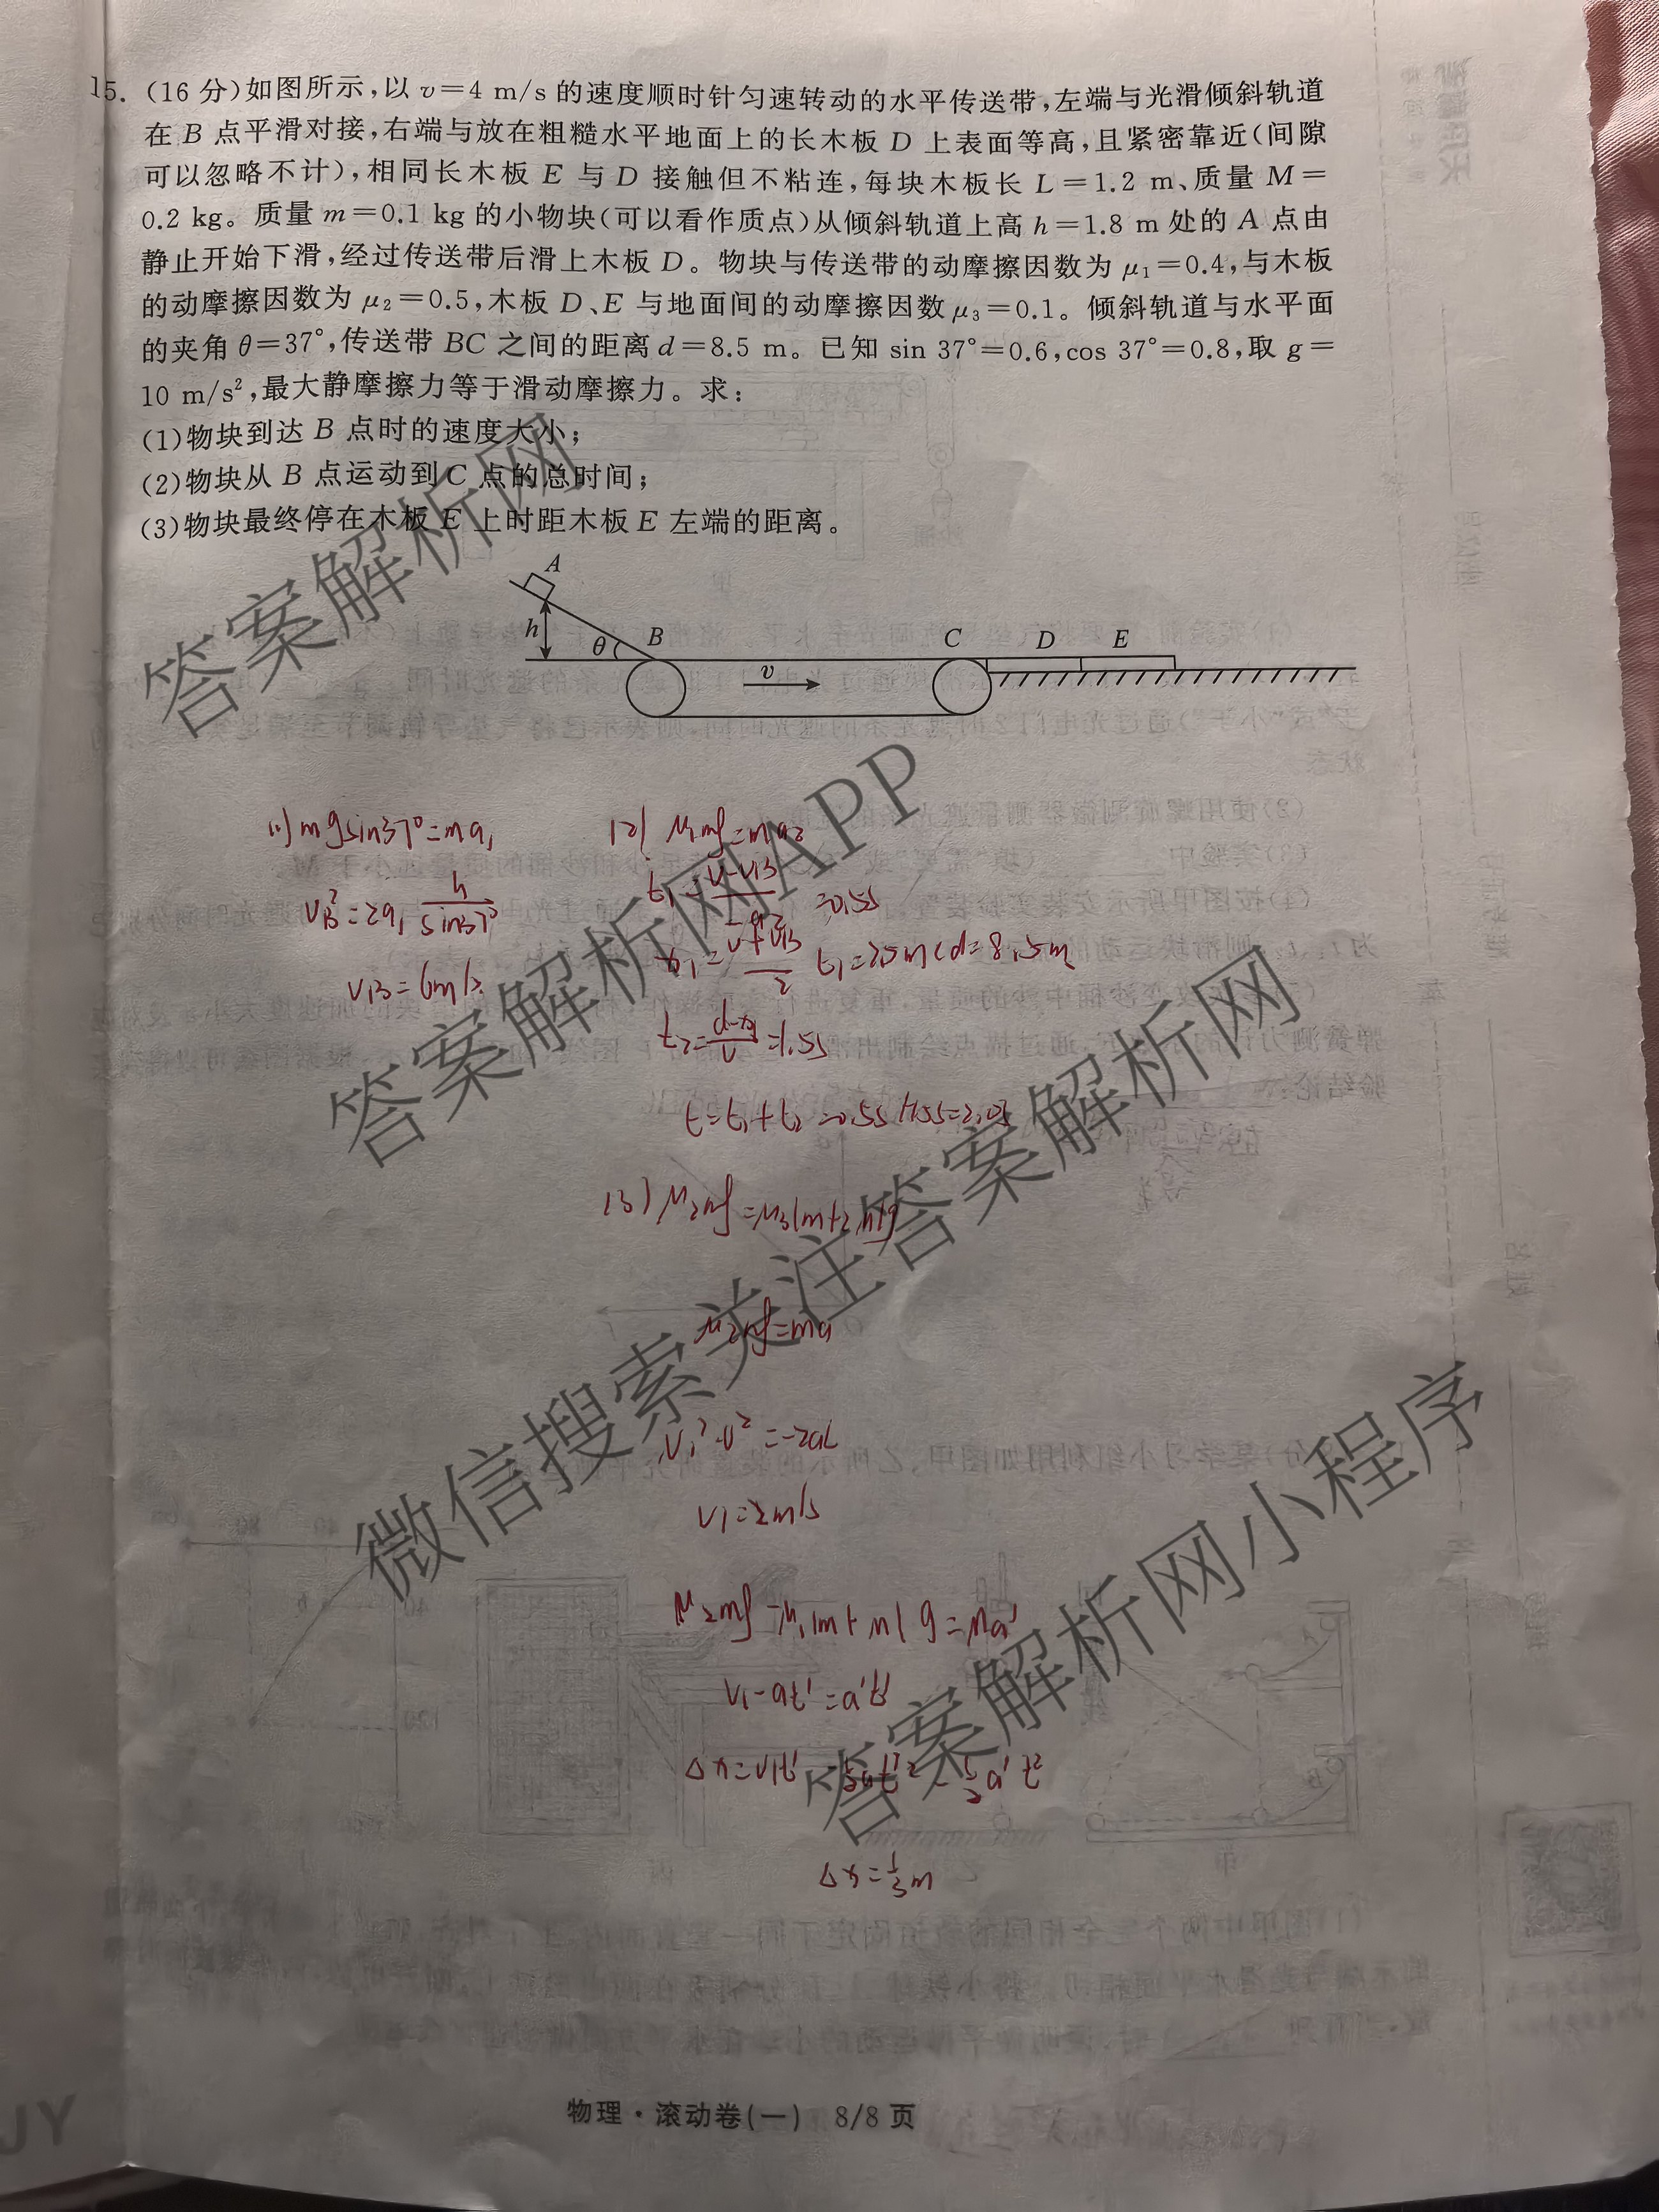 15. (16 分)如图所示,以 v=4 m/s 的速度顺时针匀速转动的水平传送带,左端与光滑倾斜轨道
在 B 点平滑对接,右端与放在粗糙水平地面上的长木板 D 上表面等高,且紧密靠近(间隙
可以忽略不计),相同长木板 E 与 D 接触但不粘连,每块木板长 L=1.2 m、质量 M=
0.2 kg。质量 m=0.1 kg 的小物块(可以看作质点)从倾斜轨道上高 h=1.8 m 处的 A 点由
静止开始下滑,经过传送带后滑上木板 D。物块与传送带的动摩擦因数为 μ₁=0.4,与木板
的动摩擦因数为 μ₂=0.5,木板 D、E 与地面间的动摩擦因数 μ₃=0.1。倾斜轨道与水平面
的夹角 θ=37°,传送带 BC 之间的距离 d=8.5 m。已知 sin 37°=0.6,cos 37°=0.8,取 g=
10 m/s²,最大静摩擦力等于滑动摩擦力。求:
(1)物块到达 B 点时的速度大小;
(2)物块从 B 点运动到 C 点的总时间;
(3)物块最终停在木板 E 上时距木板 E 左端的距离。
A
h
θ
B
v
C
D
E
(1) mgsin37°=ma₁
vB²=2a₁ h/sin37°
vB=6m/s
(2) μ₁mg=ma₂
=0.5s
t₁=2.5m<d=8.5m
=1.5s
t=t₁+t₂=0.5s+1.5s=2.0s
(3) μ₂mg=μ₃(m+2M)g
μ₂mg=ma
v₁²-v²=-2aL
v₁=2m/s
μ₂mg-μ₁(m+M)g=Ma'
v₁-at'=a't'
Δx=v₁t'-½at'²-½a't²
Δx=⅓m
答案解析网
答案解析网APP
微信搜索关注答案解析网
答案解析网小程序
物理·滚动卷(一) 8/8 页
JY